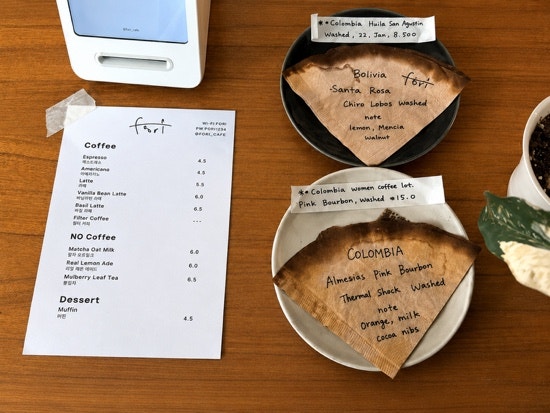 fori
WI-FI FORI
PW FORI1234
@FORI_CAFE
Coffee
Espresso 4.5
에스프레소
Americano 4.5
아메리카노
Latte 5.5
라떼
Vanilla Bean Latte 6.0
바닐라빈 라떼
Basil Latte 6.5
바질 라떼
Filter Coffee ---
필터 커피
NO Coffee
Matcha Oat Milk 6.0
말차 오트밀크
Real Lemon Ade 6.0
리얼 레몬 에이드
Mulberry Leaf Tea 6.5
뽕잎차
Dessert
Muffin 4.5
머핀
**Colombia Huila San Agustin
Washed, 22. Jan, 8.500
Bolivia fori
Santa Rosa
Chiro Lobos Washed
note
lemon, Mencia
walnut
**Colombia women coffee lot.
Pink Bourbon, Washed #15.0
COLOMBIA
Almesias Pink Bourbon
Thermal Shock Washed
note
orange, milk
cocoa nibs